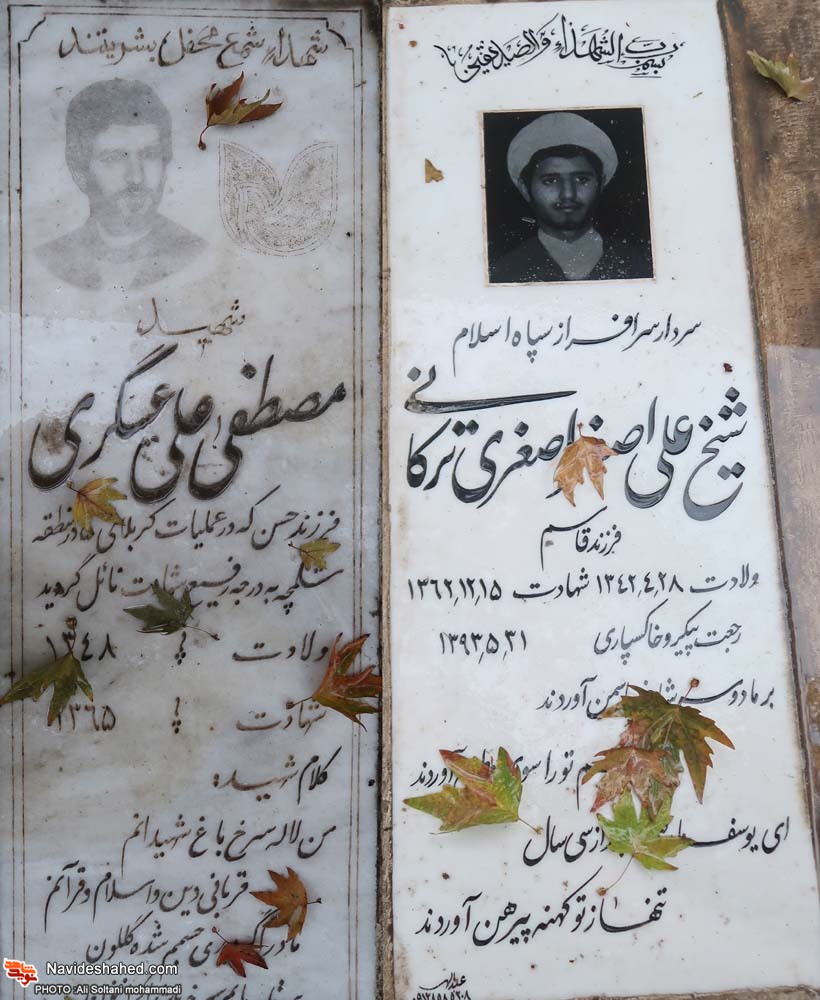 شهداء شمع محفل بشریتند
شهید
مصطفی علی عسگری
فرزند حسن که در عملیات کربلای در منطقه
شلمچه به درجه رفیع شهادت نائل گردید
ولادت ۱۳۴۸
شهادت ۱۳۶۵
کلام شهید:
من لاله سرخ باغ شهیدانم
قربانی دین و اسلام و قرآنم
جسم شده گلگون
بسم رب الشهداء والصدیقین
سردار سرافراز سپاه اسلام
شیخ علی اصغر اصغری ترکانی
فرزند قاسم
ولادت ۱۳۴۲,۴,۲۸ شهادت ۱۳۶۲,۱۲,۱۵
رجعت پیکر و خاکسپاری ۱۳۹۳,۵,۳۱
بر ما دو سه آوردند
تو را سوی آوردند
ای یوسف از سی سال
تنها ز تو کهنه پیرهن آوردند
Navideshahed.com
PHOTO :Ali Soltani mohammadi